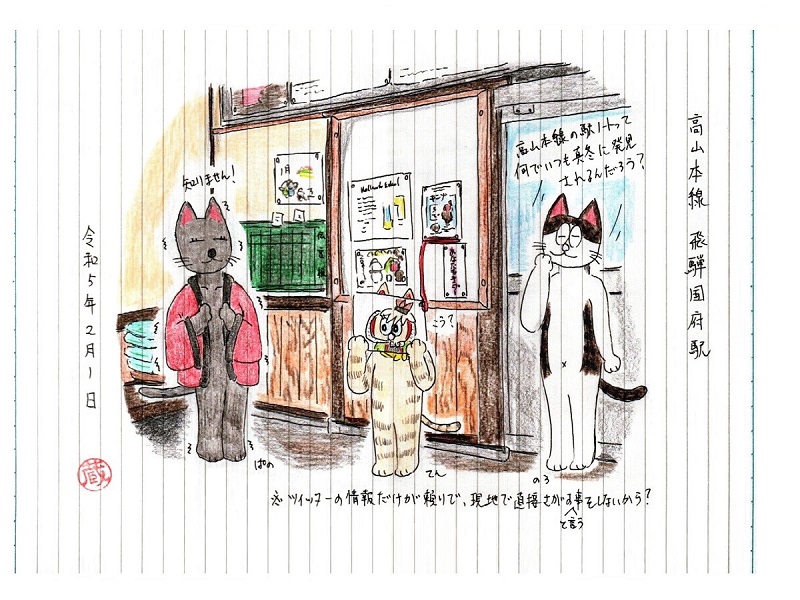 高山本線 飛騨国府駅
高山本線の駅ノートって
何でいつも真冬に発見
されるんだろう?
知りません!
1月
こう?
ぱの
てん
のろ
※ツイッターの情報だけが頼りで、現地で直接さがす事をしないから?
と言う
令和5年2月1日
蔵